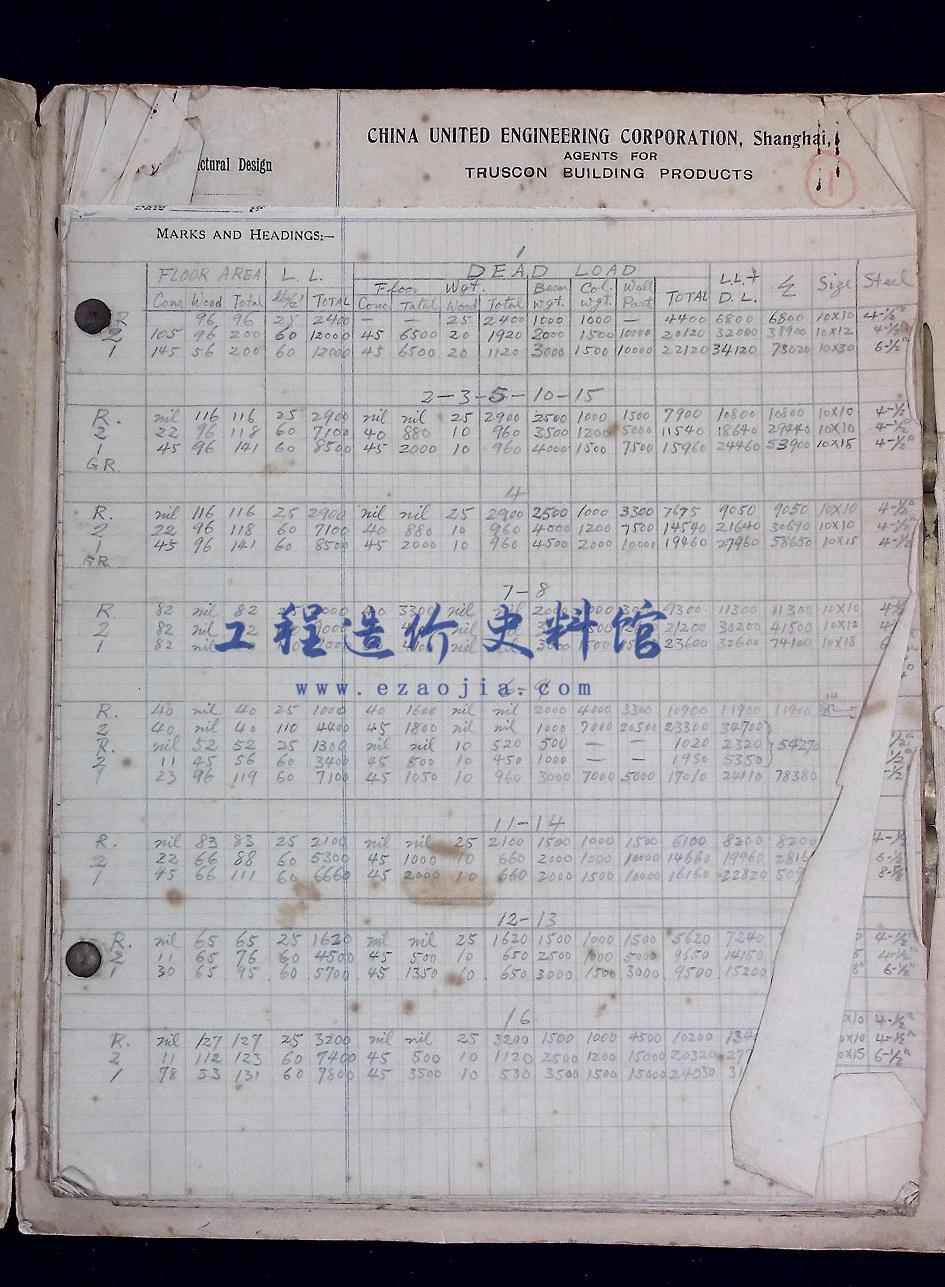 ctural Design
CHINA UNITED ENGINEERING CORPORATION, Shanghai,
AGENTS FOR
TRUSCON BUILDING PRODUCTS
1
MARKS AND HEADINGS:—
1
FLOOR AREA L. L. DEAD LOAD
Floor Wgt. Beam Col. Wall L.L.+ Σ Size Steel
Conc Wood Total TOTAL Conc Total Wood Total wgt. wgt. Part. TOTAL D.L.
R 96 96 25 2400 — — 25 2400 1000 1000 — 4400 6800 6800 10X10 4-½"
2 105 96 200 60 12000 45 6500 20 1920 2000 1500 10000 20120 32000 38900 10X12 4-½"
1 145 56 200 60 12000 45 6500 20 1120 3000 1500 10000 22120 34120 73020 10X30 6-½"
2-3-5-10-15
R. nil 116 116 25 2900 nil nil 25 2900 2500 1000 1500 7900 10800 10800 10X10 4-½"
2 22 96 118 60 7100 40 880 10 960 3500 1200 5000 11540 18640 29440 10X10 4-½"
1 45 96 141 60 8500 45 2000 10 960 4000 1500 7500 15960 24460 53900 10X15 4-½"
GR.
4
R. nil 116 116 25 2900 nil nil 25 2900 2500 1000 3300 7675 9050 9050 10X10 4-½"
2 22 96 118 60 7100 40 880 10 960 4000 1200 7500 14540 21640 30690 10X10 4-½"
1 45 96 141 60 8500 45 2000 10 960 4500 2000 10000 19460 27960 58650 10X15 4-½
GR
7-8
R 82 nil 82 3300 nil 9300 11300 11300 10X10
2 82 nil 21200 30200 41500 10X12
1 82 nil 23600 32600 74100 10X18
工程造价史料馆
www.ezaojia.com
R. 40 nil 40 25 1000 40 1600 nil nil 2000 4000 3300 10900 11900 11900 14
2 40 nil 40 110 4400 45 1800 nil nil 1000 7000 20500 23300 34700
R. nil 52 52 25 1300 nil nil 10 520 500 — — 1020 2320 54270 ½"
2 11 45 56 60 3400 45 500 10 450 1000 — — 1950 5350 ½"
1 23 96 119 60 7100 45 1050 10 960 3000 7000 5000 17010 24110 78380 -½"
11-14
R. nil 83 83 25 2100 nil nil 25 2100 1500 1000 1500 6100 8200 8200 4-½
2 22 66 88 60 5300 45 1000 10 660 2000 1000 10000 14660 19960 2816 6-½"
1 45 66 111 60 6660 45 2000 10 660 2000 1500 10000 16160 22820 8-⅝"
12-13
R. nil 65 65 25 1620 nil nil 25 1620 1500 1000 1500 5620 7240 4-½"
2 11 65 76 60 4500 45 500 10 650 2500 1000 5000 9650 14150 4-½"
1 30 65 95 60 5700 45 1350 10 650 3000 1500 3000 9500 15200 6-½"
16
X10 4-½"
R. nil 127 127 25 3200 nil nil 25 3200 1500 1000 4500 10200 134 0X10 4-½"
2 11 112 123 60 7400 45 500 10 1120 2500 1200 15000 20320 277 0X15 6-½"
1 78 53 131 60 7800 45 3500 10 530 3500 1500 15000 24030 31